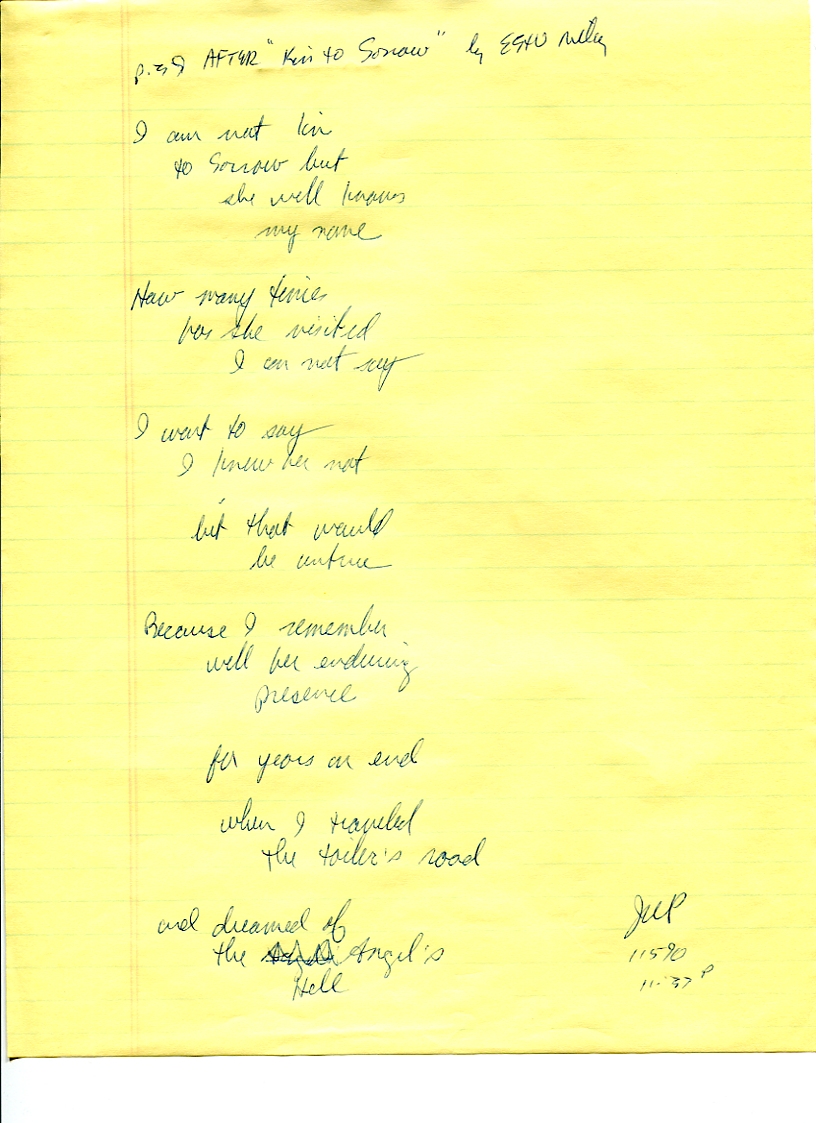 AFTER "Kin to Sorrow" by EStV Millay
I am not kin
to Sorrow but
she well knows
my name
How many times
has she visited
I can not say
I want to say
I knew her not
but that would
be untrue
Because I remember
well her enduring
presence
for years on end
when I traveled
the toiler's road
and dreamed of
the Angel's
Hell
11590
11:37 P